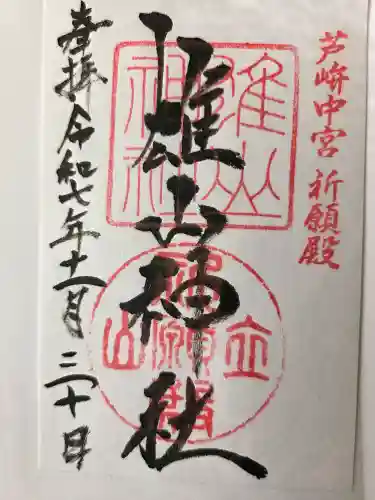 芦峅中宮 祈願殿
雄山神社
奉拝 令和七年十一月三十日
雄山神社
立山 祈願殿